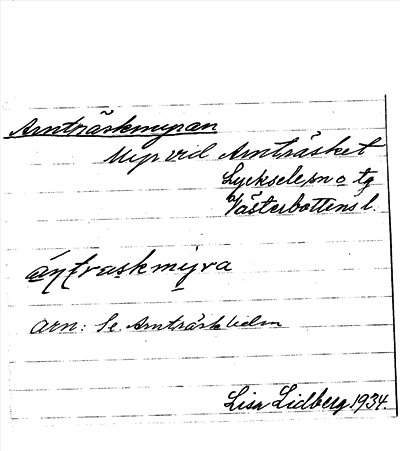 Arnträskmyran
Myr vid Arnträsket
Lycksele sn o tg
Västerbottens l.
áṇtraskmyra
arn: Se Arnträsk
Lisa Lidberg 1934.